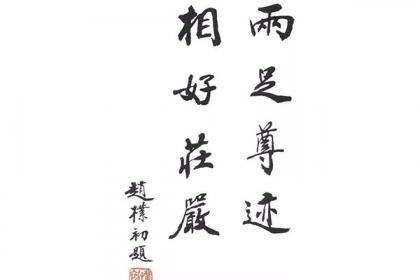 兩足尊迹
相好莊嚴
趙樸初題